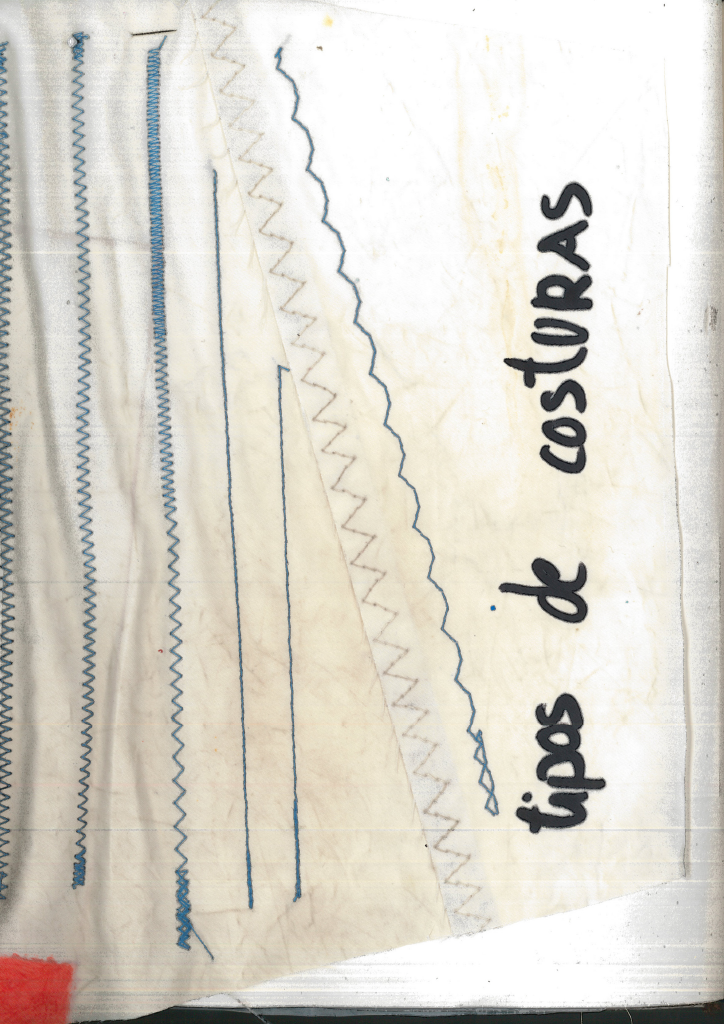 tipos de costuras